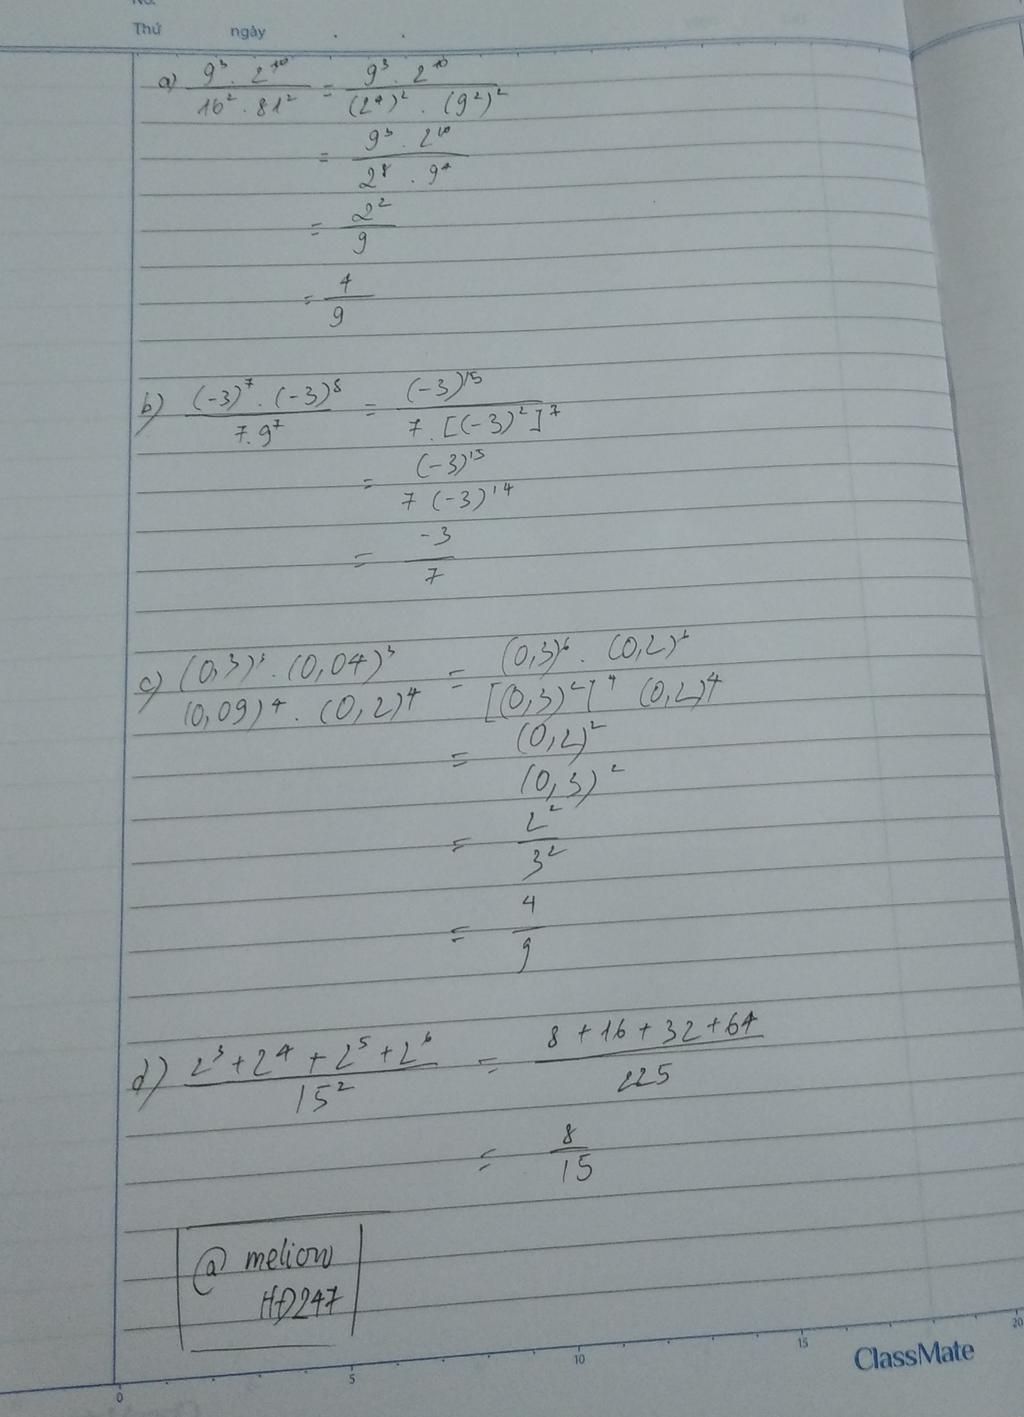 No.
Thứ ngày . .
a) 9³ . 2¹⁰ / 16² . 81² = 9³ . 2¹⁰ / (2⁴)² . (9²)²
= 9³ . 2¹⁰ / 2⁸ . 9⁴
= 2² / 9
= 4 / 9
b) (-3)⁷ . (-3)⁸ / 7.9⁷ = (-3)¹⁵ / 7. [(-3)²]⁷
= (-3)¹⁵ / 7 (-3)¹⁴
= -3 / 7
c) (0,3)⁶ . (0,04)³ / (0,09)⁴ . (0,2)⁴ = (0,3)⁶ . (0,2)⁶ / [(0,3)²]⁴ (0,2)⁴
= (0,2)² / (0,3)²
= 2² / 3²
= 4 / 9
d) 2³ + 2⁴ + 2⁵ + 2⁶ / 15² = 8 + 16 + 32 + 64 / 225
= 8 / 15
@ meliow
HD247
0 5 10 15 20
ClassMate